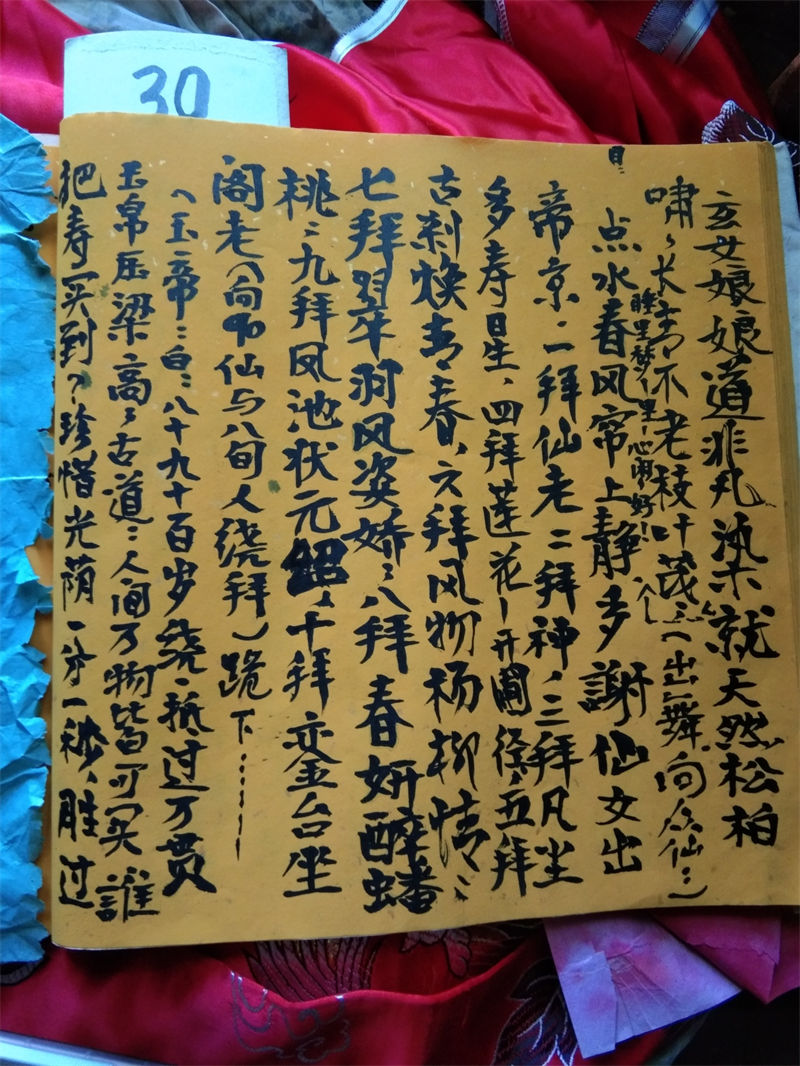 30
玄女娘娘道非凡染就天然松柏
啸、长青不老枝叶茂（出舞向众仙:）
睡里梦里心闹好!
点水春风帘上静多謝仙女出
帝京、一拜仙老二拜神、三拜凡尘
多寿日生、四拜莲花开圃徐、五拜
古刹焕青春、六拜风物杨柳情:
七拜翠羽风姿娇:八拜春妍醉蟠
桃:九拜凤池状元、十拜、金台坐
阁老（向仙与八旬人绕拜）跪下......
（玉帝:白:八十九十百岁绕、抵过万贯
玉帛压梁高、古道:人间万物皆可买誰
把寿买到?珍惜光荫一分一秒、胜过